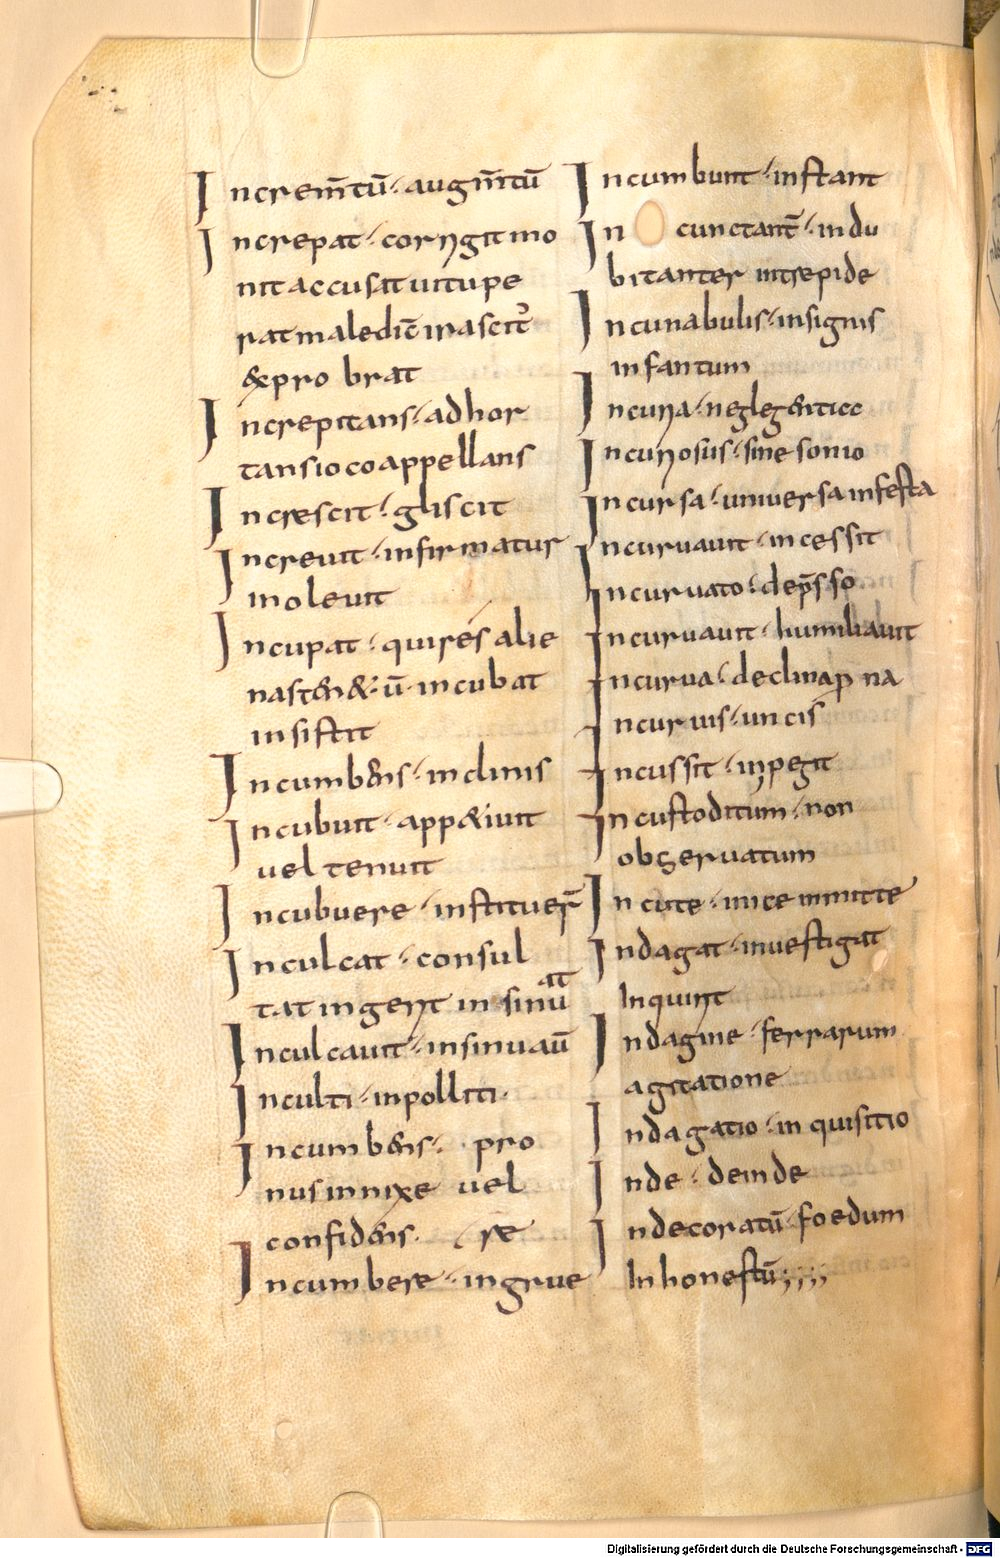 Increm̄tū· augm̄tū
Increpat· corrigit mo
nit accusat uitupe
rat maledic̄ irascit̄
&xpro brat
Increpitans· adhor
tans io co appellans
Increscit· gliscit
Increuit· infirmatur
inoleuit
Incupat· qui res alie
nas ten&· ū· incubat
insistit
Incumbens· inclinis
Incubuit· app&iuit
uel tenuit
Incubuere· instituer̄
Inculcat· consul
tat ingerit insinu
at
Inculcauit· insinuaū
Inculti· inpoliti·
Incumbens· pro
nus innixe uel
confidens· re
Incumbere· ingrue
Incumbunt· instant
In cunctant̄· indu
bitanter intrepide
Incunabulis· insignis
infantum
Incuria· neglegentiae
Incuriosus· sine sonio
Incursa· uniuersa infesta
Incuruauit· incessit
Incuruato· dep̄sso
Incuruauit· humiliauit
Incurua· declinap na
Incuruis· uncis
Incussit· inpegit
Incustoditum· non
obseruatum
In cute· inice inmitte
Indagat· inuestigat
Inquirit
Indagine· ferrarum
agitatione
Indagatio· inquisitio
Inde· deinde
Indecoratū· foedum
Inhonestū;;;;
Digitalisierung gefördert durch die Deutsche Forschungsgemeinschaft - DFG